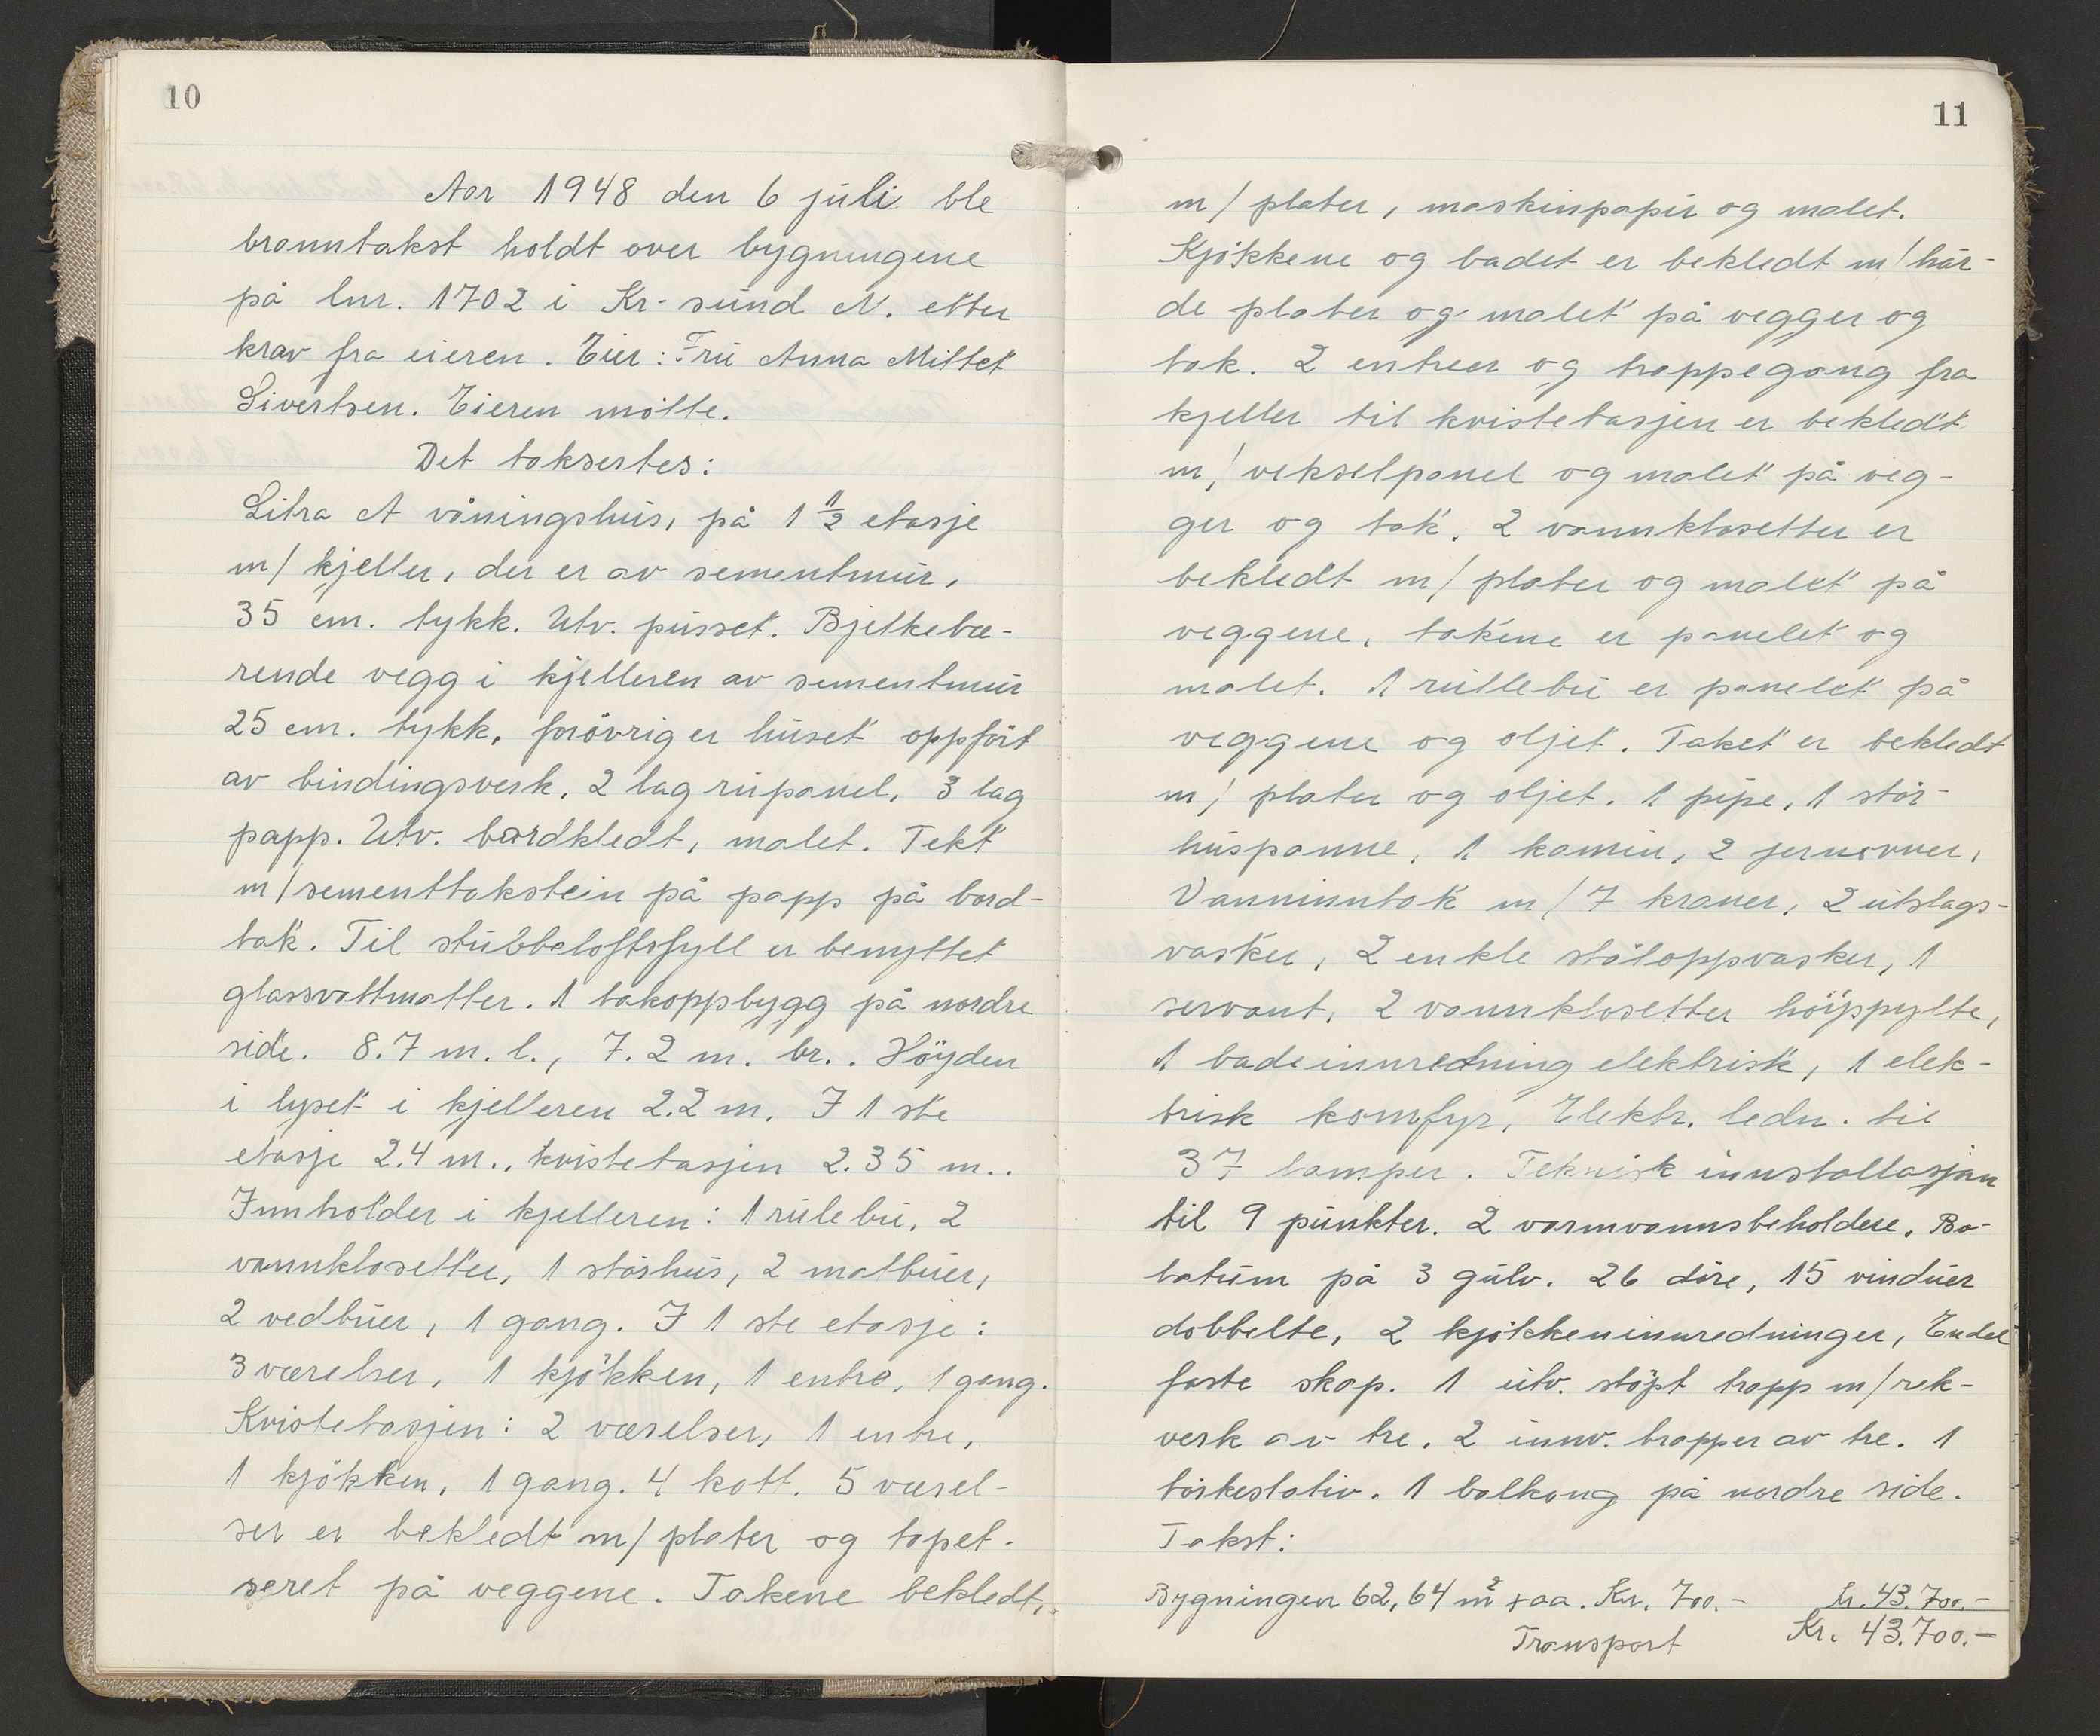 10
Aar 1948 den 6 juli ble
branntakst holdt over bygningene
på lnr. 1702 i Kr-sund N. etter
krav fra eieren. Eier: Fru Anna Mittet
Sivertsen. Eieren møtte.
Det taksertes:
Litra A våningshus, på 1 1/2 etasje
m/ kjeller, der er av sementmur,
35 cm. tykk. Utv. pusset. Bjelkebæ-
rende vegg i kjelleren av sementmur
25 cm. tykk, forövrig er huset oppfört
av bindingsverk. 2 lag rupanel, 3 lag
papp. Utv. bordkledt, malet. Tekt
m/ sementtakstein på papp på bord-
tak. Til stubbeloftsfyll er benyttet
glassvattmatter. 1 takoppbygg på nordre
side. 8.7 m. l., 7.2 m. br.. Höyden
i lyset i kjelleren 2.2 m. I 1 ste
etasje 2.4 m., kvistetasjen 2.35 m..
Innholder i kjelleren: 1 rulebu, 2
vannklosetter, 1 störhus, 2 matbuer,
2 vedbuer, 1 gang. I 1 ste etasje:
3 værelser, 1 kjökken, 1 entre, 1 gang.
Kvistetasjen: 2 værelser, 1 entre,
1 kjökken, 1 gang. 4 kott. 5 værel-
ser er bekledt m/ plater og tapet-
seret på veggene. Takene bekledt,
11
m/ plater, maskinpapir og malet.
Kjökkene og badet er bekledt m/ har-
de plater og malet på vegger og
tak. 2 entreer og trappegang fra
kjeller til kvistetasjen er bekledt
m/ vekselpanel og malet på veg-
ger og tak. 2 vannklosetter er
bekledt m/ plater og malet på
veggene, takene er panelet og
malet. 1 rullebu er panelet på
veggene og oljet. Taket er bekledt
m/ plater og oljet. 1 pipe, 1 stör-
huspanne, 1 kamin, 2 jernovner,
Vanninntak m/ 7 kraner, 2 utslags-
vasker, 2 enkle ståloppvasker, 1
servant, 2 vannklosetter höyspylte,
1 badeinnredning elektrisk, 1 elek-
trisk komfyr, Elektr. ledn. til
37 lamper. Teknisk innstallasjon
til 9 punkter. 2 varmvannsbeholdere. Ba-
latum på 3 gulv. 26 döre, 15 vinduer
dobbelte, 2 kjökkeninnredninger, Endel
faste skap. 1 utv. stöpt trapp m/ rek-
verk av tre. 2 innv. trapper av tre. 1
törkestativ. 1 balkong på nordre side.
Takst:
Bygningen 62,64 m² + aa. Kr. 700.- Kr. 43.700.-
Transport Kr. 43.700.-